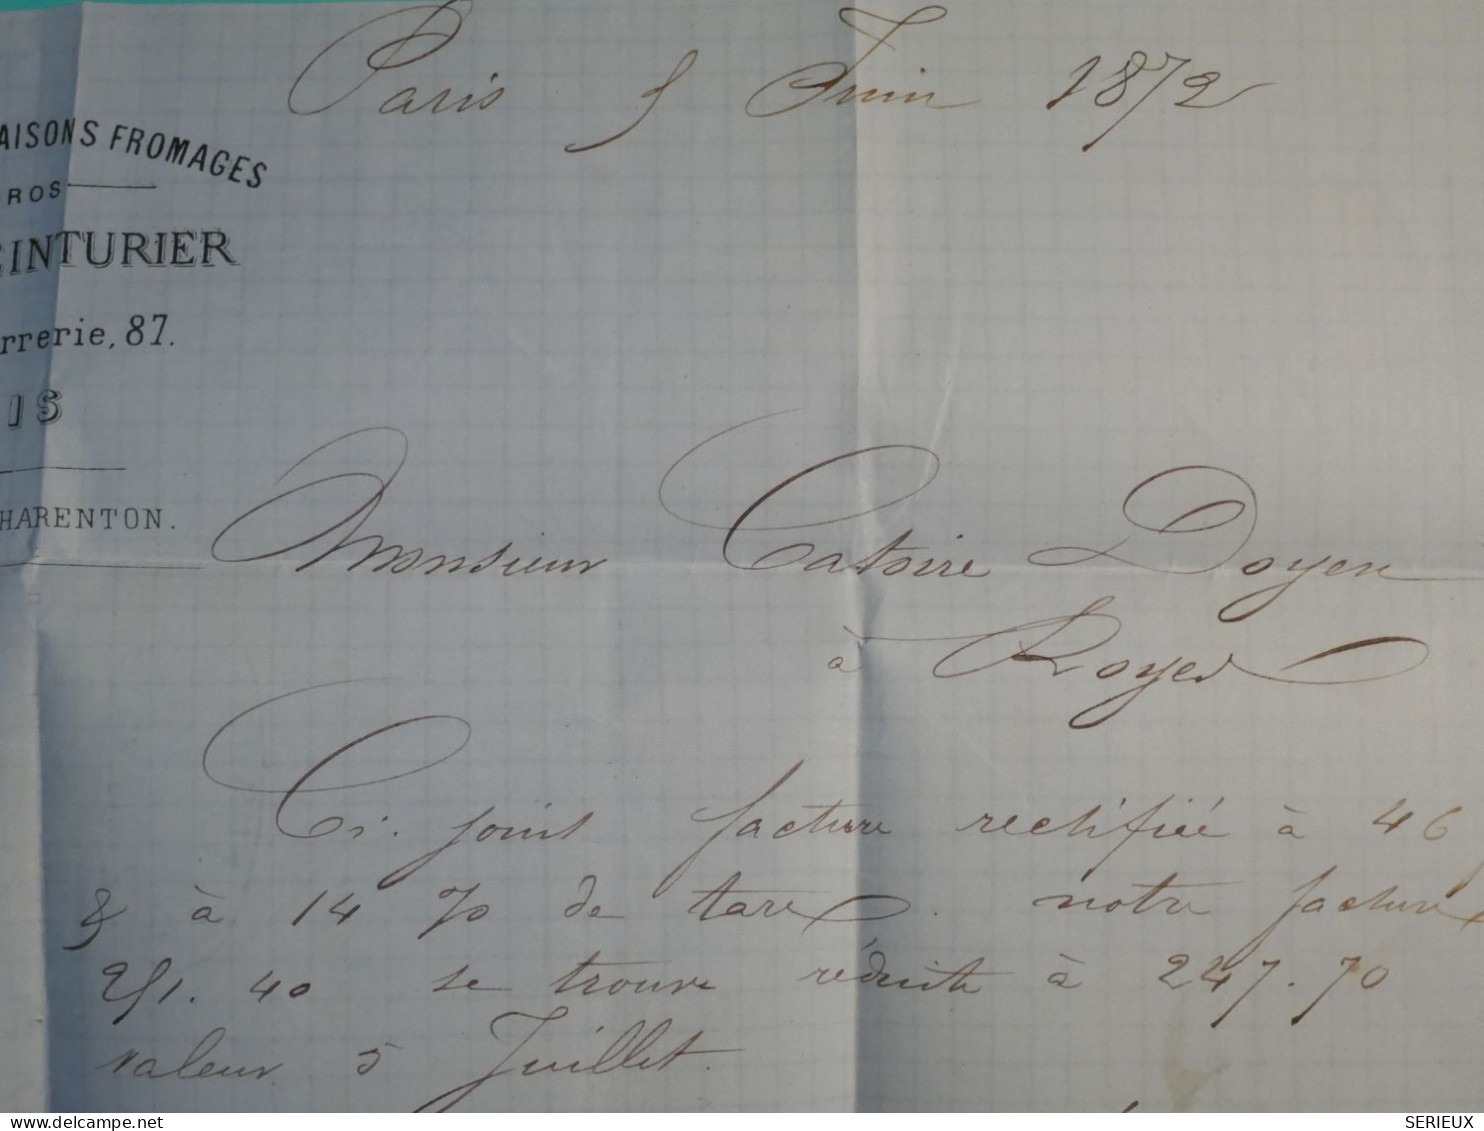 Paris 5 Juin 1872
AISONS FROMAGES
ROS
EINTURIER
rrerie, 87.
IS
HARENTON.
Monsieur Catoire Doyen
à Roye
Ci. joint facture rectifiée à 46
& à 14 % de tare. notre facture
251.40 se trouve réduite à 247.70
valeur 5 Juillet.
delcampe.net
SERIEUX